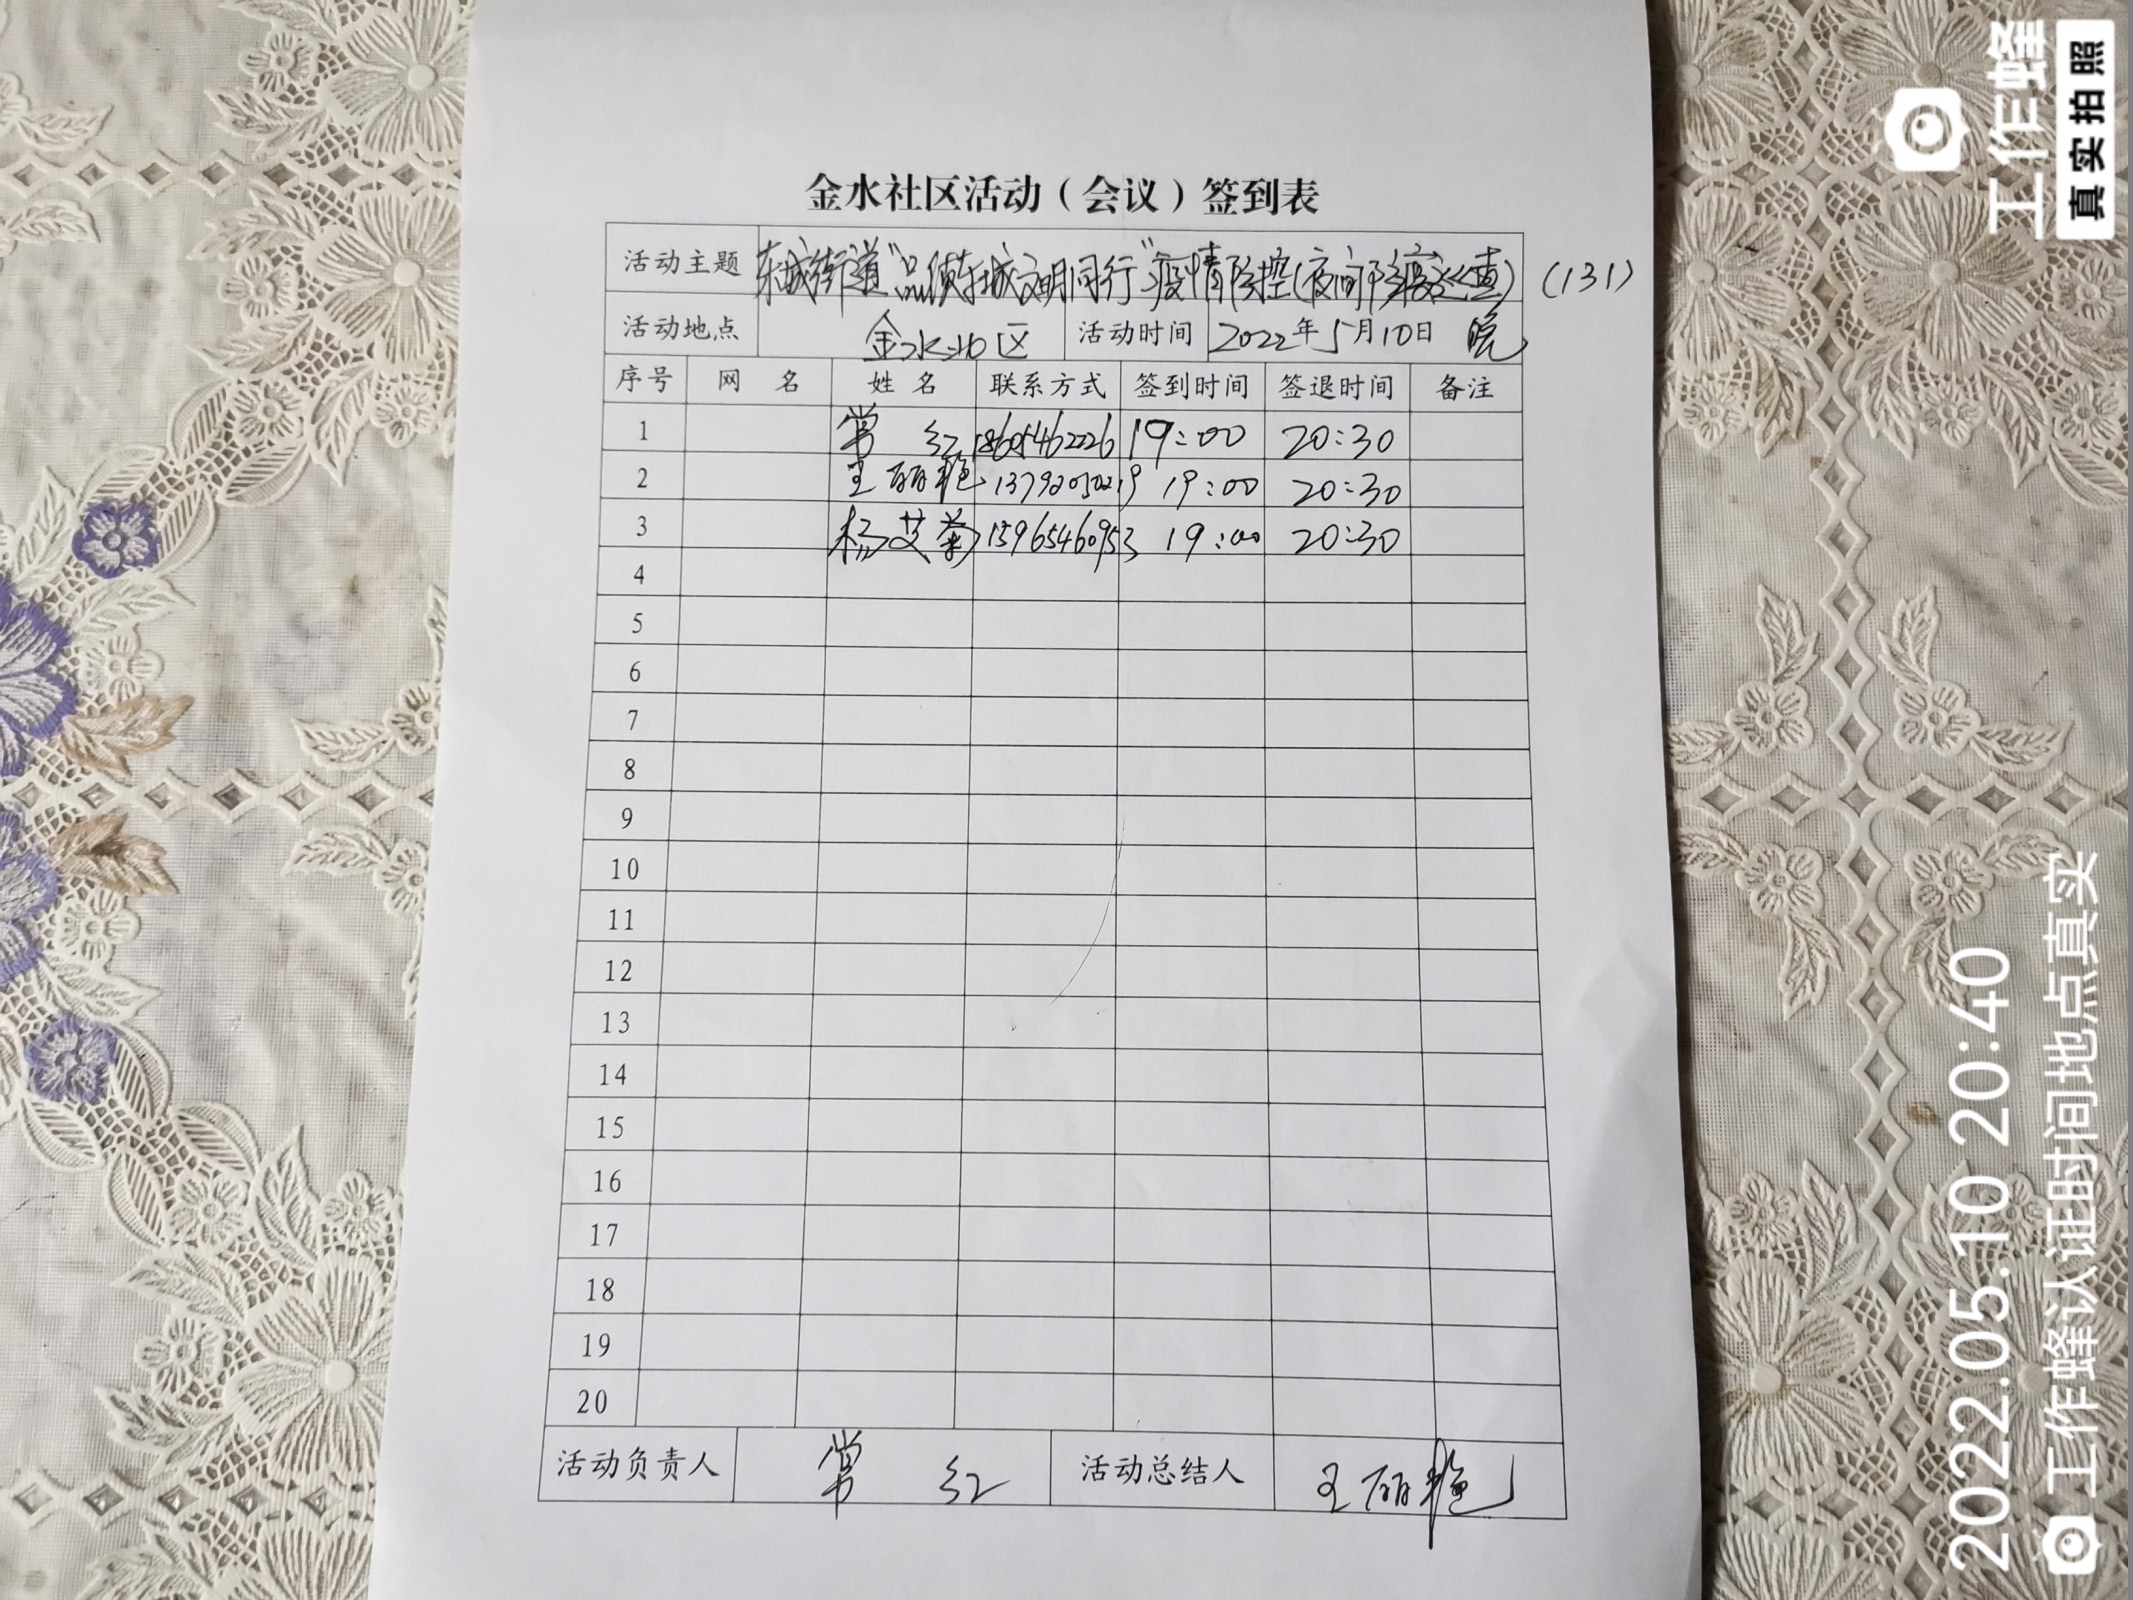 金水社区活动（会议）签到表
活动主题 东城街道"品质东城文明同行"疫情防控(夜间防疫巡查) (131)
活动地点 金水北区 活动时间 2022年5月10日 晚
序号 网 名 姓 名 联系方式 签到时间 签退时间 备注
1 常 红 18605462226 19:00 20:30
2 王丽艳 13792050219 19:00 20:30
3 杨艾菊 15965460953 19:00 20:30
4
5
6
7
8
9
10
11
12
13
14
15
16
17
18
19
20
活动负责人 常 红 活动总结人 王丽艳
工作蜂
真实拍照
2022.05.10 20:40
工作蜂认证时间地点真实